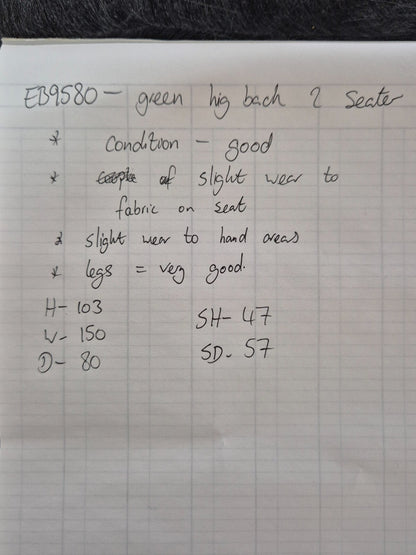 EB9580 - green hig back 2 Seater
* Condition - good
* slight wear to
fabric on seat
* slight wear to hand areas
* legs = very good.
H- 103
W- 150
D- 80
SH- 47
SD- 57